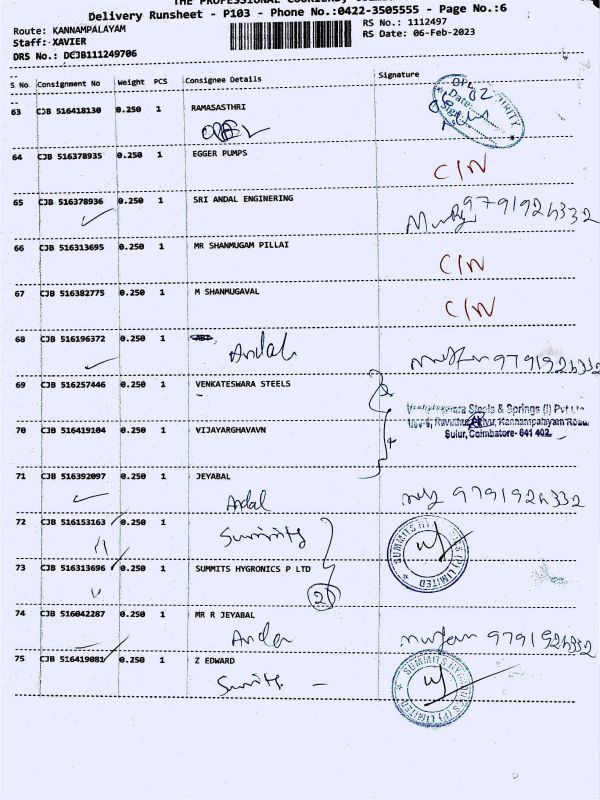 Delivery Runsheet - P103 - Phone No.:0422-3505555 - Page No.:6
Route: KANNAMPALAYAM
RS No.: 1112497
Staff: XAVIER
RS Date: 06-Feb-2023
DRS No.: DCJB111249706
S No. Consignment No Weight PCS Consignee Details Signature
63 CJB 516418130 0.250 1 RAMASASTHRI
64 CJB 516378935 0.250 1 EGGER PUMPS
C/N
65 CJB 516378936 0.250 1 SRI ANDAL ENGINERING
9791926332
66 CJB 516313695 0.250 1 MR SHANMUGAM PILLAI
C/N
67 CJB 516382775 0.250 1 M SHANMUGAVAL
C/N
68 CJB 516196372 0.250 1
Andal 9791926332
69 CJB 516257446 0.250 1 VENKATESWARA STEELS
Steels & Springs (I) Pvt
Kannampalayam Road,
Sulur, Coimbatore- 641 402.
70 CJB 516419104 0.250 1 VIJAYARGHAVAVN
71 CJB 516392097 0.250 1 JEYABAL
Andal 9791926332
72 CJB 516153163 0.250 1 Summits
SUMMITS HYGRONICS (P) LIMITED
73 CJB 516313696 0.250 1 SUMMITS HYGRONICS P LTD
2
74 CJB 516042287 0.250 1 MR R JEYABAL
Andal 9791926332
75 CJB 516419081 0.250 1 Z EDWARD
Summits
SUMMITS HYGRONICS (P) LIMITED